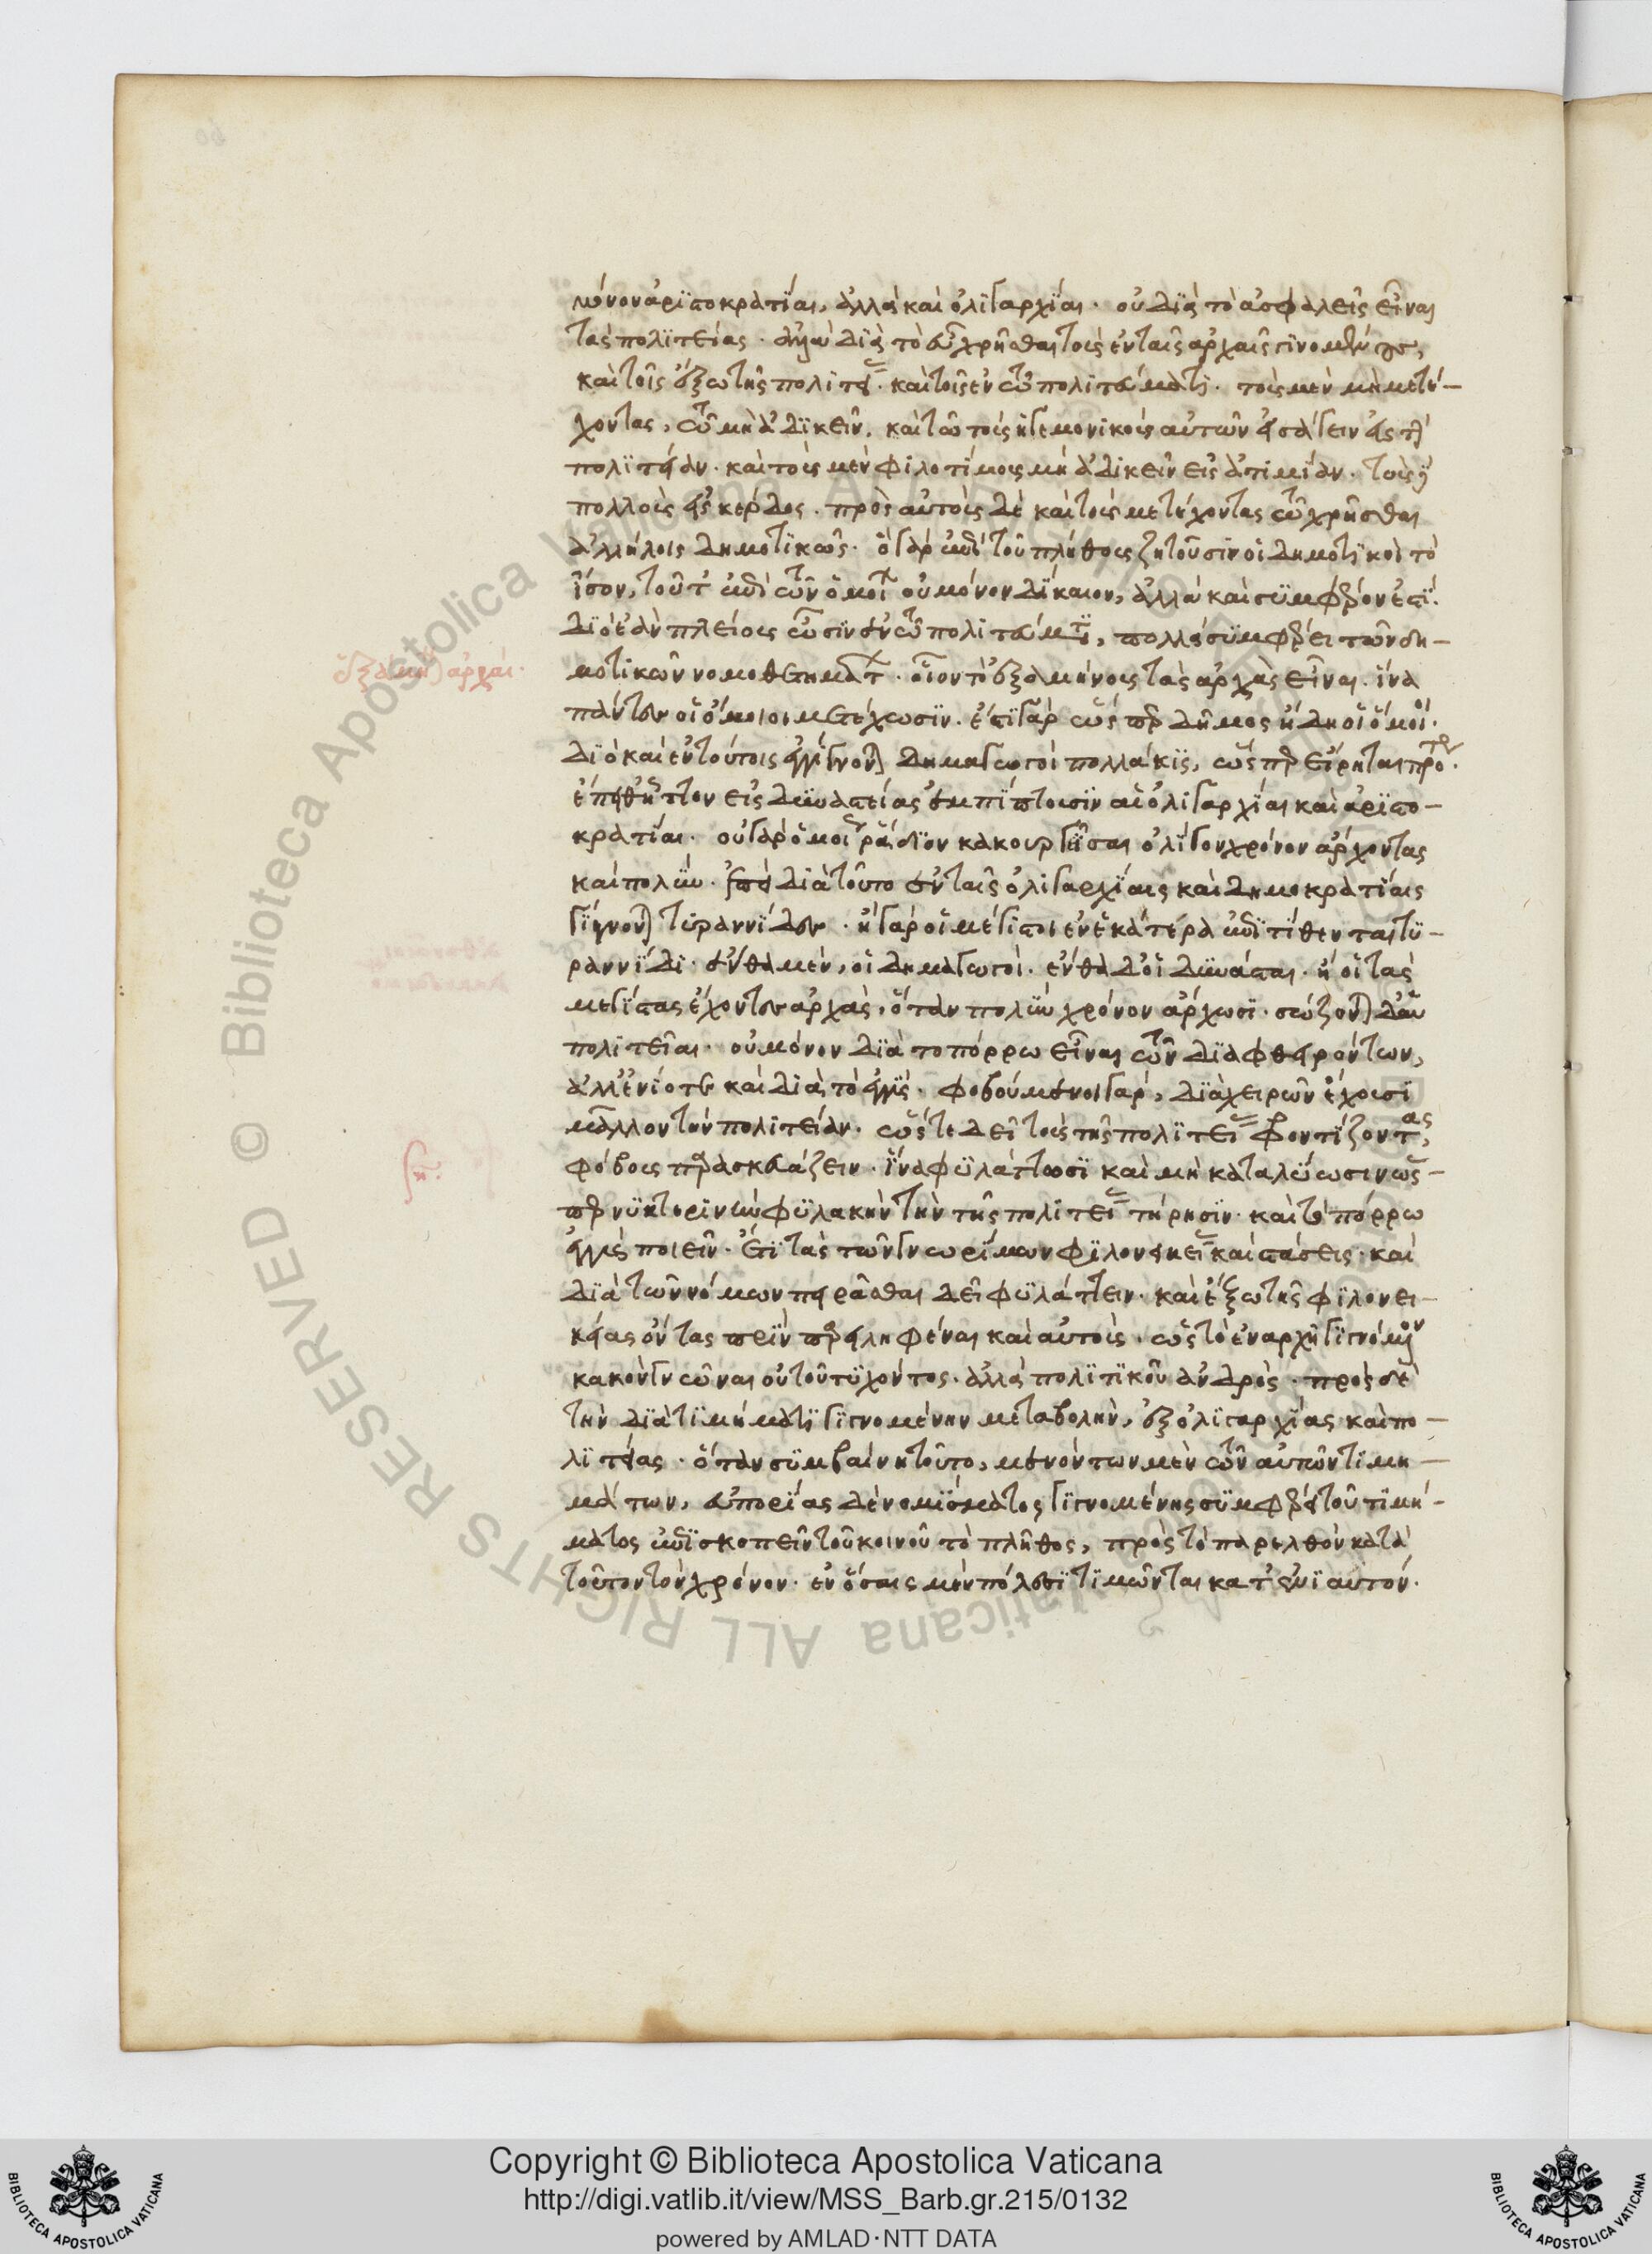 μόνον ἀριστοκρατίαι, ἀλλὰ καὶ ὀλιγαρχίαι. οὐ διὰ τὸ ἀσφαλεῖς εἶναι
τὰς πολιτείας. ἀλλὰ διὰ τὸ εὖ χρῆσθαι τοὺς ἐν ταῖς ἀρχαῖς γινομένους,
καὶ τοῖς ἔξω τῆς πολιτείας. καὶ τοῖς ἐν τῷ πολιτεύματι. τοὺς μὲν μὴ μετέ-
χοντας, τῷ μὴ ἀδικεῖν. καὶ τῷ τοὺς ἡγεμονικοὺς αὐτῶν εἰσάγειν εἰς τὴν
πολιτείαν. καὶ τοὺς μὲν φιλοτίμους μὴ ἀδικεῖν εἰς ἀτιμίαν. τοὺς δὲ
πολλοὺς εἰς κέρδος. πρὸς αὐτοὺς δὲ καὶ τοὺς μετέχοντας τῷ χρῆσθαι
ἀλλήλοις δημοτικῶς. ὃ γὰρ ἐπὶ τοῦ πλήθους ζητοῦσιν οἱ δημοτικοὶ τὸ
ἴσον, τοῦτ' ἐπὶ τῶν ὁμοίων οὐ μόνον δίκαιον, ἀλλὰ καὶ συμφέρον ἐστί.
διὸ ἐὰν πλείους ὦσιν ἐν τῷ πολιτεύματι, πολλὰ συμφέρει τῶν δη-
μοτικῶν νομοθετημάτων. οἷον τὸ ἑξαμήνους τὰς ἀρχὰς εἶναι. ἵνα
πάντες οἱ ὅμοιοι μετέχωσιν. ἔστι γὰρ ὥσπερ δῆμος ἤδη οἱ ὅμοιοι.
διὸ καὶ ἐν τούτοις ἐγγίγνονται δημαγωγοὶ πολλάκις, ὥσπερ εἴρηται πρότερον.
ἔπειθ' ἧττον εἰς δυναστείας ἐμπίπτουσιν αἱ ὀλιγαρχίαι καὶ ἀριστο-
κρατίαι. οὐ γὰρ ὁμοίως ῥᾴδιον κακουργῆσαι ὀλίγον χρόνον ἄρχοντας
καὶ πολύν. ἐπεὶ διὰ τοῦτο ἐν ταῖς ὀλιγαρχίαις καὶ δημοκρατίαις
γίγνονται τυραννίδες. ἢ γὰρ οἱ μέγιστοι ἐν ἑκατέρᾳ ἐπιτίθενται τυ-
ραννίδι. ἔνθα μὲν, οἱ δημαγωγοί. ἔνθα δ' οἱ δυνάσται. ἢ οἱ τὰς
μεγίστας ἔχοντες ἀρχάς, ὅταν πολὺν χρόνον ἄρχωσι. σώζονται δ' αἱ
πολιτεῖαι. οὐ μόνον διὰ τὸ πόρρω εἶναι τῶν διαφθειρόντων,
ἀλλ' ἐνίοτε καὶ διὰ τὸ ἐγγύς. φοβούμενοι γὰρ, διὰ χειρῶν ἔχουσι
μᾶλλον τὴν πολιτείαν. ὥστε δεῖ τοὺς τῆς πολιτείας φροντίζοντας,
φόβους παρασκευάζειν. ἵνα φυλάττωσι καὶ μὴ καταλύωσιν ὥς-
περ νυκτερινὴν φυλακὴν τὴν τῆς πολιτείας τήρησιν. καὶ τὸ πόρρω
ἐγγὺς ποιεῖν. ἔτι τὰς τῶν γνωρίμων φιλονεικείας καὶ στάσεις. καὶ
διὰ τῶν νόμων πειρᾶσθαι δεῖ φυλάττειν. καὶ ἔξω τῆς φιλονει-
κείας ὄντας πρὶν παρειληφέναι καὶ αὐτούς. ὡς τὸ ἐν ἀρχῇ γιγνόμενον
κακὸν γνῶναι οὐ τοῦ τυχόντος. ἀλλὰ πολιτικοῦ ἀνδρός. πρὸς δὲ
τὴν διὰ τιμήματι γιγνομένην μεταβολὴν, ἐξ ὀλιγαρχίας καὶ πο-
λιτείας. ὅταν συμβαίνῃ τοῦτο, μενόντων μὲν τῶν αὐτῶν τιμη-
μάτων, εὐπορίας δὲ νομίσματος γιγνομένης συμφέρει τοῦ τιμή-
ματος ἐπισκοπεῖν τοῦ κοινοῦ τὸ πλῆθος, πρὸς τὸ παρελθὸν κατὰ
τοῦτον τὸν χρόνον. ἐν ὅσαις μὲν πόλεσι τιμῶνται κατ' ἐνιαυτόν.
ἑξάμηνοι ἀρχαί.
Copyright © Biblioteca Apostolica Vaticana
http://digi.vatlib.it/view/MSS_Barb.gr.215/0132
powered by AMLAD·NTT DATA
BIBLIOTECA APOSTOLICA VATICANA
BIBLIOTECA APOSTOLICA VATICANA
© Biblioteca Apostolica Vaticana ALL RIGHTS RESERVED